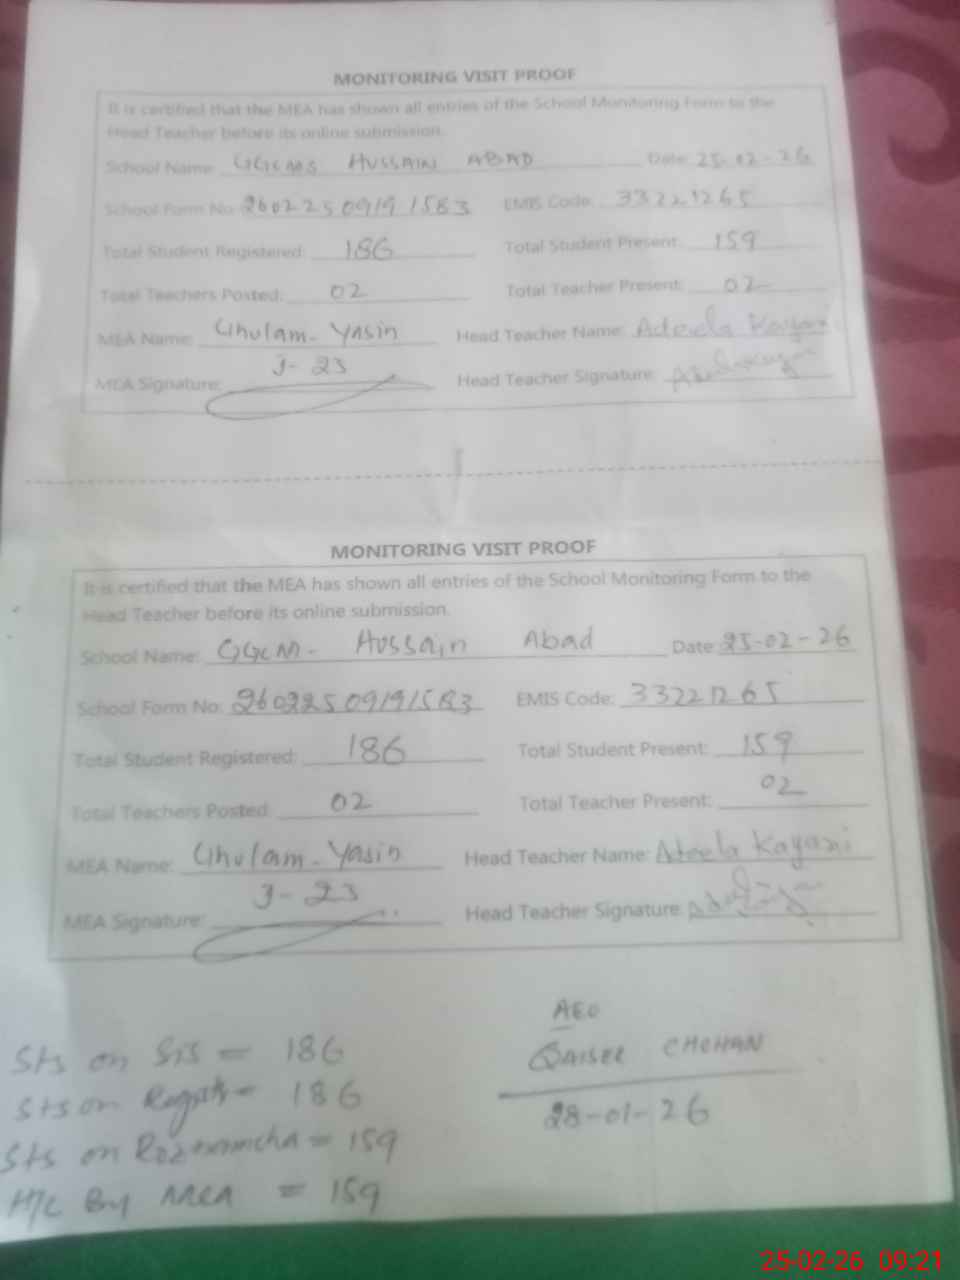 MONITORING VISIT PROOF
It is certified that the MEA has shown all entries of the School Monitoring Form to the
Head Teacher before its online submission.
School Name: GGCMS HUSSAIN ABAD Date: 25-02-26
School Form No: 26022509191583 EMIS Code: 33221265
Total Student Registered: 186 Total Student Present: 159
Total Teachers Posted: 02 Total Teacher Present: 02
MEA Name: Ghulam-Yasin Head Teacher Name: Adeela Kayani
J-23
MEA Signature: Head Teacher Signature:
MONITORING VISIT PROOF
It is certified that the MEA has shown all entries of the School Monitoring Form to the
Head Teacher before its online submission.
School Name: GGCM- Hussain Abad Date: 25-02-26
School Form No: 26022509191583 EMIS Code: 33221265
Total Student Registered: 186 Total Student Present: 159
Total Teachers Posted: 02 Total Teacher Present: 02
MEA Name: Ghulam-Yasin Head Teacher Name: Adeela Kayani
J-23
MEA Signature: Head Teacher Signature:
AEO
QAISER CHOHAN
28-01-26
Sts on SiS = 186
Sts on = 186
Sts on Roznamcha = 159
H/C By MEA = 159
25-02-26 09:21